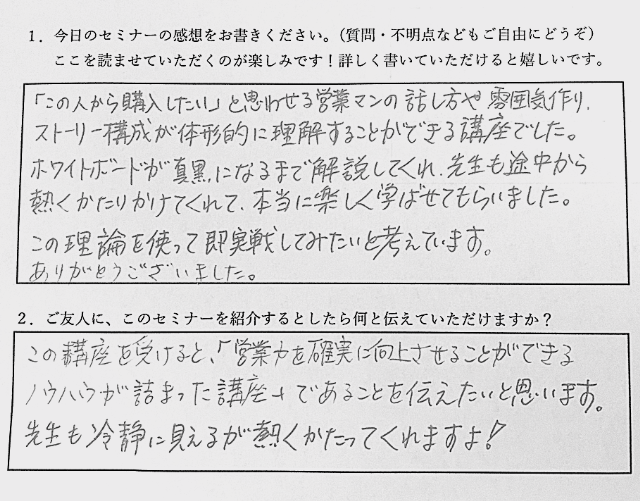 1．今日のセミナーの感想をお書きください。（質問・不明点などもご自由にどうぞ）
ここを読ませていただくのが楽しみです！詳しく書いていただけると嬉しいです。
「この人から購入したい」と思わせる営業マンの話し方や雰囲気作り、
ストーリー構成が体形的に理解することができる講座でした。
ホワイトボードが真黒になるまで解説してくれ、先生も途中から
熱くかたりかけてくれて、本当に楽しく学ばせてもらいました。
この理論を使って即実戦してみたいと考えています。
ありがとうございました。
2．ご友人に、このセミナーを紹介するとしたら何と伝えていただけますか？
この講座を受けると、「営業力を確実に向上させることができる
ノウハウが詰まった講座」であることを伝えたいと思います。
先生も冷静に見えるが熱くかたってくれますよ！